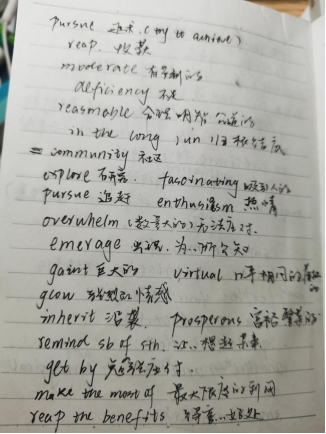 pursue 追求 (try to achieve)
reap. 收获
moderate 有节制的
deficiency 不足
reasonable 合理 明智 合适的
in the long run 从长远
community 社区
explore 研究 fascinating 吸引人的
pursue 追赶 enthusism 热情
overwhelm (数量大的) 无法应对
emerage 出现. 为..所欠知
gaint 巨大的 virtual
glow 强烈的情感
inherit 沿袭. prosperous 富裕 繁荣的
remind sb of sth. 让..想起某某
get by 勉强应付.
make the most of 最大限度的利用
reap the benefits. 得...好处